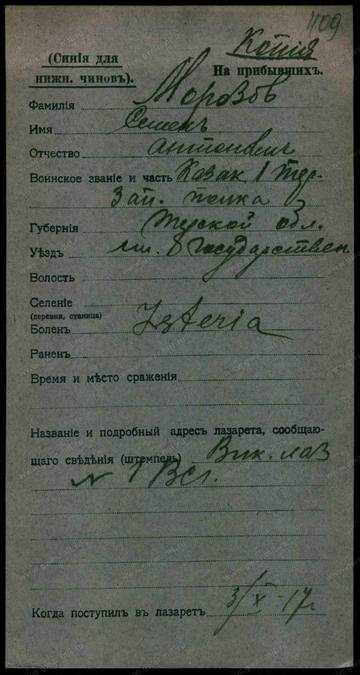 1109
Копія
(Синія для
нижн. чиновъ).
На прибывшихъ.
Фамилія Морозов
Имя Семенъ
Отчество Антонович
Воинское званіе и часть Казак 1 Тер.
Зап. полка
Губернія Терской обл.
Уѣздъ ст. Государствен
Волость
Селеніе
(деревня, станица)
Боленъ Isteria
Раненъ
Время и мѣсто сраженія
Названіе и подробный адресъ лазарета, сообщаю-
щаго свѣдѣнія (штемпель) Вик. лаз
N 1 В.с.г.
Когда поступилъ въ лазаретъ 3/X - 17 г